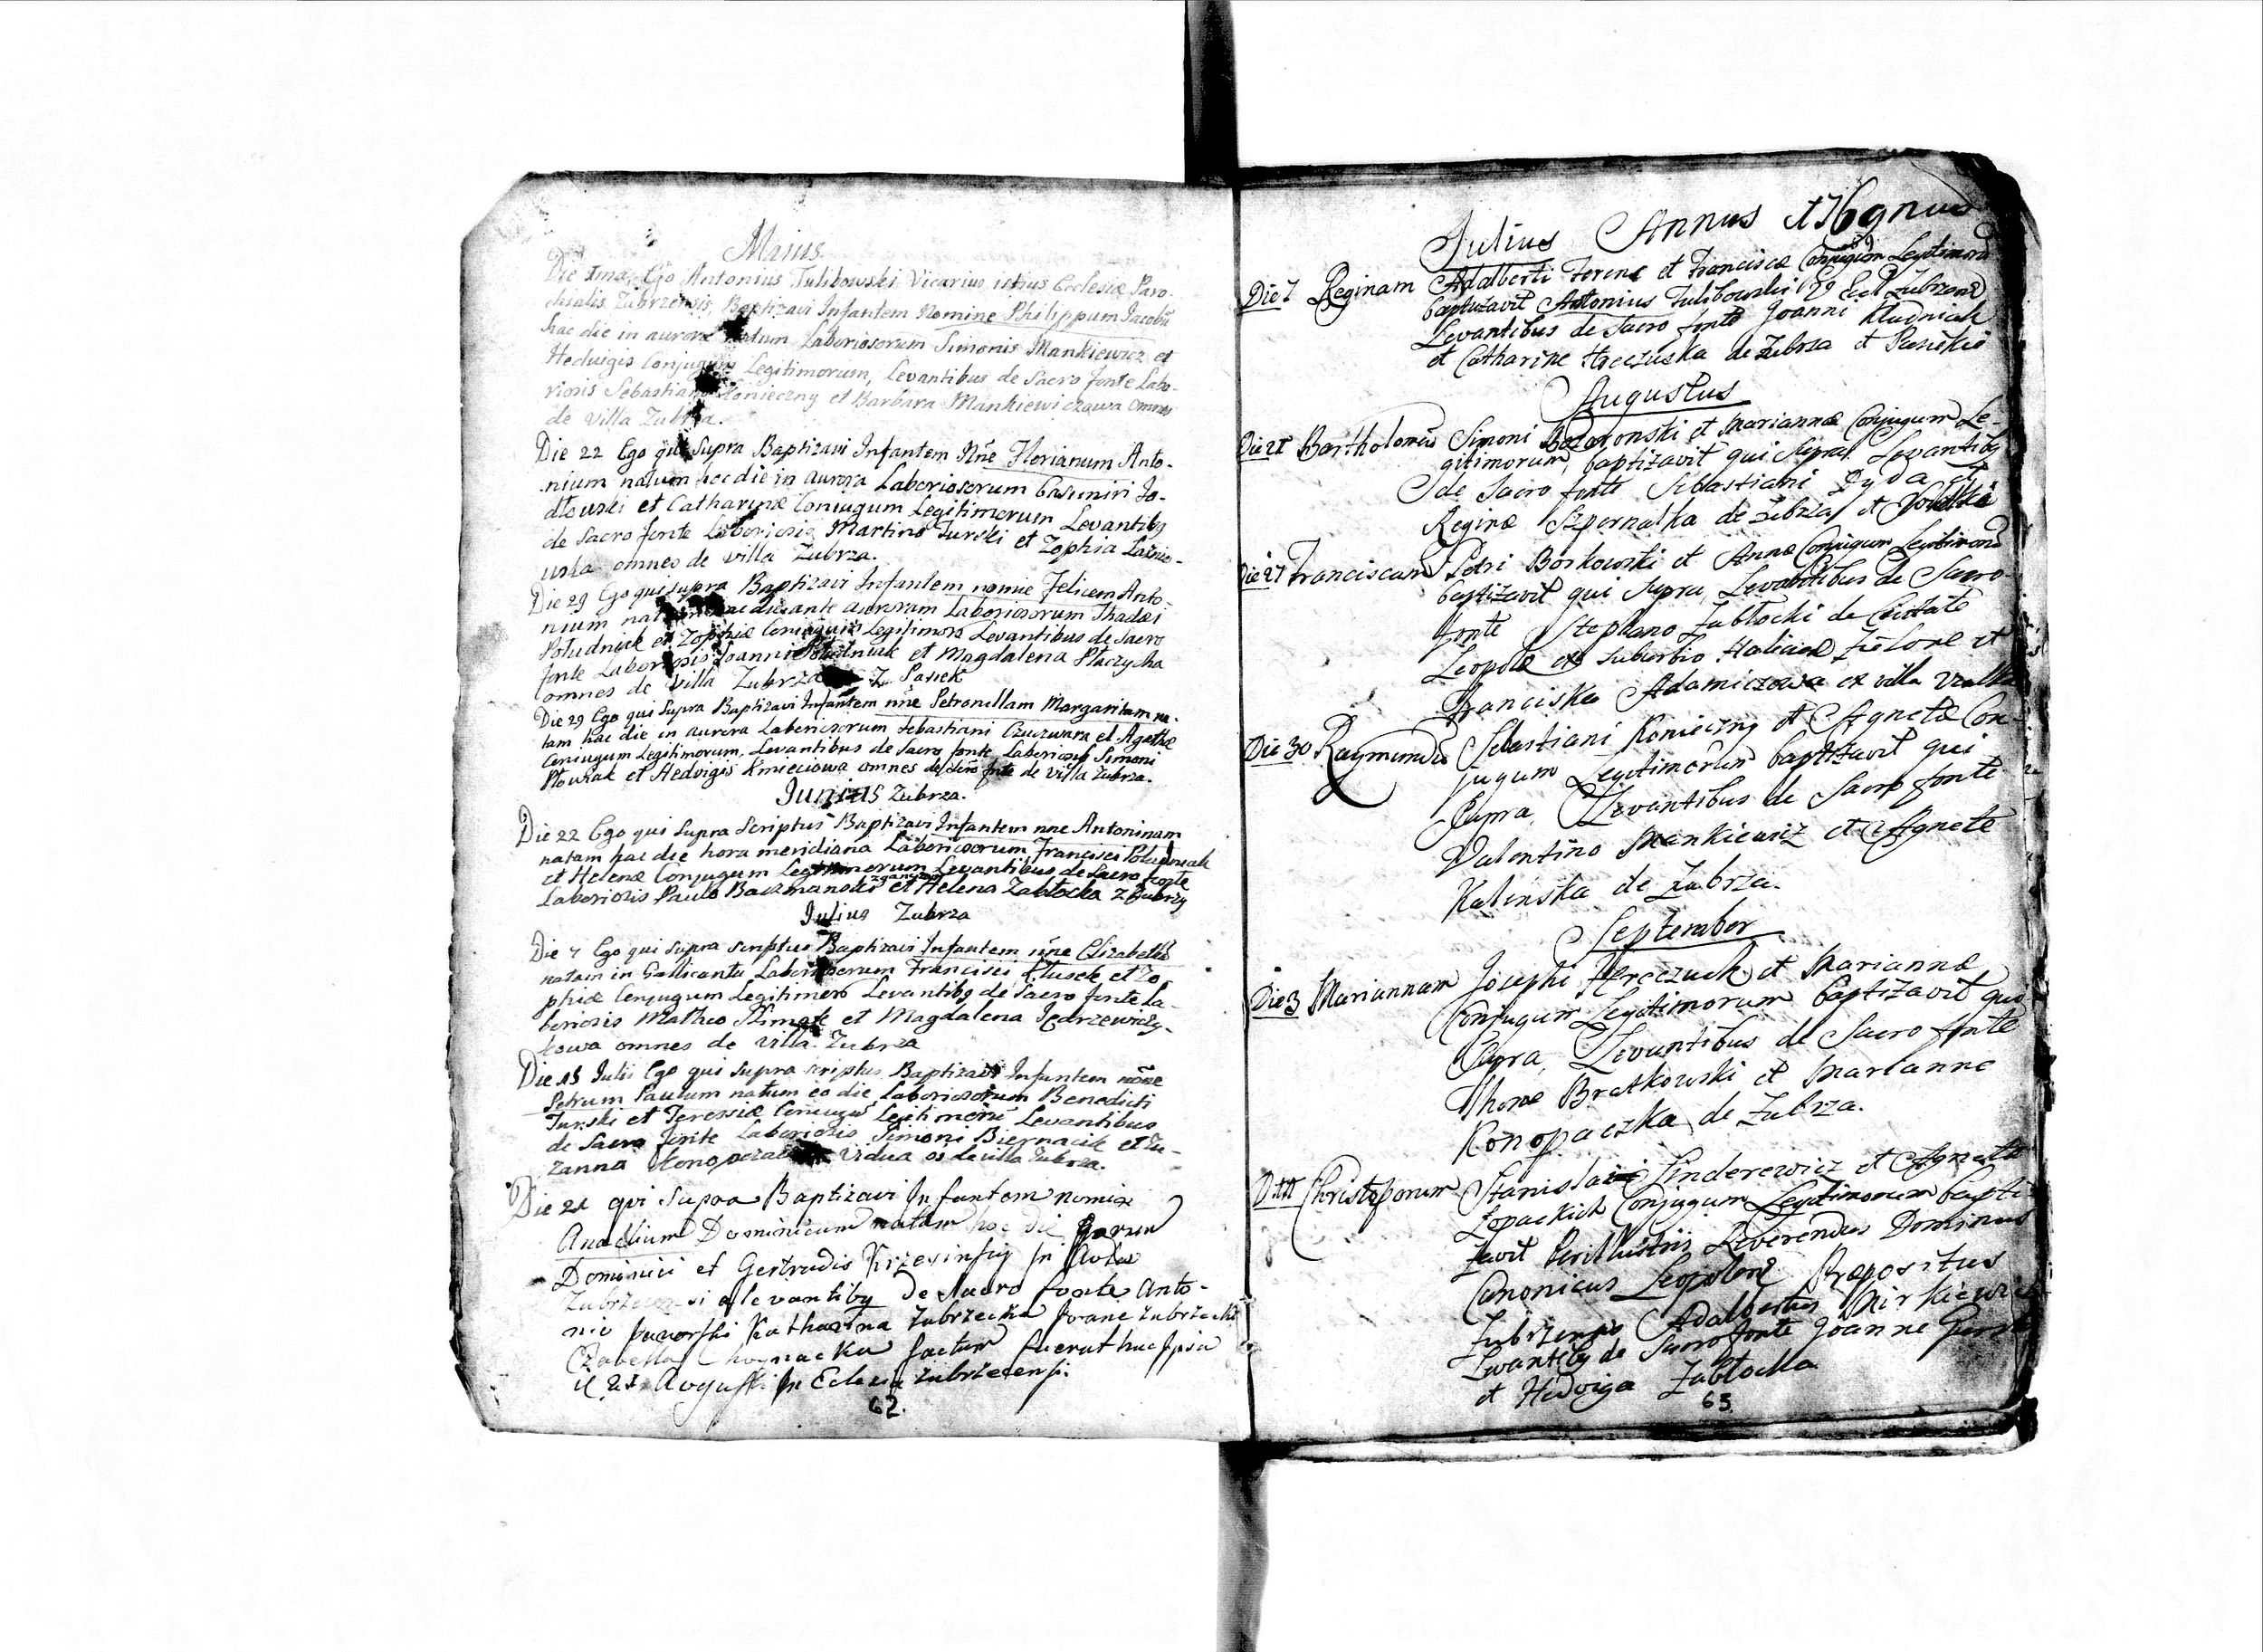 Maius
Die Ima Ego Antonius Tulibowski Vicarius istius Ecclesiæ Paro-
chialis Zubrzensis, Baptizavi Infantem Nomine Philippum Jacobũ
hac die in aurora natum Laboriosorum Simonis Mankiewicz et
Hedvigis Conjugum Legitimorum, Levantibus de Sacro fonte Labo-
riosis Sebastiano Konieczny et Barbara Mankiewiczowa omnes
de villa Zubrza.
Die 22 Ego qui Supra Baptizavi Infantem Nñe Florianum Anto-
nium natum hoc die in aurora Laboriosorum Casimiri Jo-
dłowski et Catharinæ Coniugum Legitimorum Levantibg
de Sacro fonte Laboriosis Martino Turski et Zophia
uska omnes de villa Zubrza.
Die 29 Ego qui supra Baptizavi Infantem nomine Felicem Anto
nium natum hac die ante auroram Laboriosorum Thadæi
Południak et Zophiæ Coniugum Legitimorũ Levantibus de Sacro
fonte Laboriosis Joanni Południak et Magdalena Płaczycha
omnes de villa Zubrza Z Pasiek
Die 29 Ego qui Supra Baptizavi Infantem nñe Petronellam Margaritam na-
tam hac die in aurora Laboriosorum Sebastiani Czuczwara et Agathæ
Coniugum Legitimorum, Levantibus de Sacro fonte Laboriosis Simoni
Płowiak et Hedvigis Kmieciowa omnes de villa Zubrza.
Junius Zubrza.
Die 22 Ego qui Supra Scriptus Baptizavi Infantem nne Antoninam
natam hac die hora meridiana Laboriosorum Francisci Południak
et Helenæ Conjugum Legitimorum Levantibus de Sacro fonte
Laboriosis Paulo Baczmanski et Helena Zabłocka z Zubrzy
Julius Zubrza
Die 7 Ego qui supra scriptus Baptizavi Infantem nñe Elizabetham
natam in Gallicantu Laboriosorum Francisci Klusek et Zo
phiæ Conjugum Legitimorũ Levantibg de Sacro fonte La-
boriosis Matheo Szimak et Magdalena Jędrzewiczy-
kowa omnes de villa Zubrza
Die 15 Julii Ego qui supra scriptus Baptizavi Infantem nomine
Petrum Paulum natum eo die Laboriosorum Benedicti
Turski et Teressiæ Coniugũ Legitimorũ Levantibus
de Sacro fonte Laboriosis Simoni Biernacik et Zu-
zanna Konopcza Vidua de villa Zubrza.
Die 21 qvi Supra Baptizavi Infantem nomine
Dominicum natum hoc die
Dominici et Gertrudis In Aula
Zubrzecensi a levantibg De Sacro fonte Anto-
nio Katharina Zubrzecka Joane Zubrzecki
Izabella factum fuerat
21 Avgusti In Eclezia Zubrzecensi.
62.
Julius Annus
Die 7 Reginam Adalberti Ferenc et Franciscæ Conjugum Legitimorũ
baptizavit Antonius Tulibowski Eccl Zubrzens
Levantibus de Sacro fonte Joanni Kludniak
et Catharine Hreczuska de Zubrza et Pasiekie
Augustus
Die 21 Bartholomeũ Simoni et Mariannæ Conjugum Le-
gitimorum, baptizavit qui Supra. Levantibg
de Sacro fonte Sebastiani Dyda et
Reginæ Szpernalka de Zubrza et
Die 27 Franciscam Petri Borkowski et Annæ Conjugum Legitimorũ
baptizavit qui Supra, Levantibus de Sacro
fonte Stephano Zabłocki de Civitate
Leopole ex Suburbio Haliciæ Zielone et
Franciska Adamiczowa ex villa
Die 30 Raymundũ Sebastiani Konieczny et Agnetæ Con-
jugum Legitimorum baptizavit qui
Supra, Levantibus de Sacro fonte
Valentino Mankiewicz et Agnete
Kalinska de Zubrza.
September
Die 3 Mariannam Josephi Hreczuch et Mariannæ
Conjugum Legitimorum baptizavit qui
Supra, Levantibus de Sacro fonte
Thoma Bratkowski et Marianne
Konopaczka de Zubrza.
Christophorum Stanislai Sinderewicz et Agnetæ
Łopackich Conjugum Legitimorum bapti-
zavit Perillustris Reverendus Dominus
Canonicus Leopoliens Præpositus
Zubrzensis Adalbertus Mirkiewicz
Levantibg de Sacro fonte Joanne
et Hedviga Zabłocka
63.